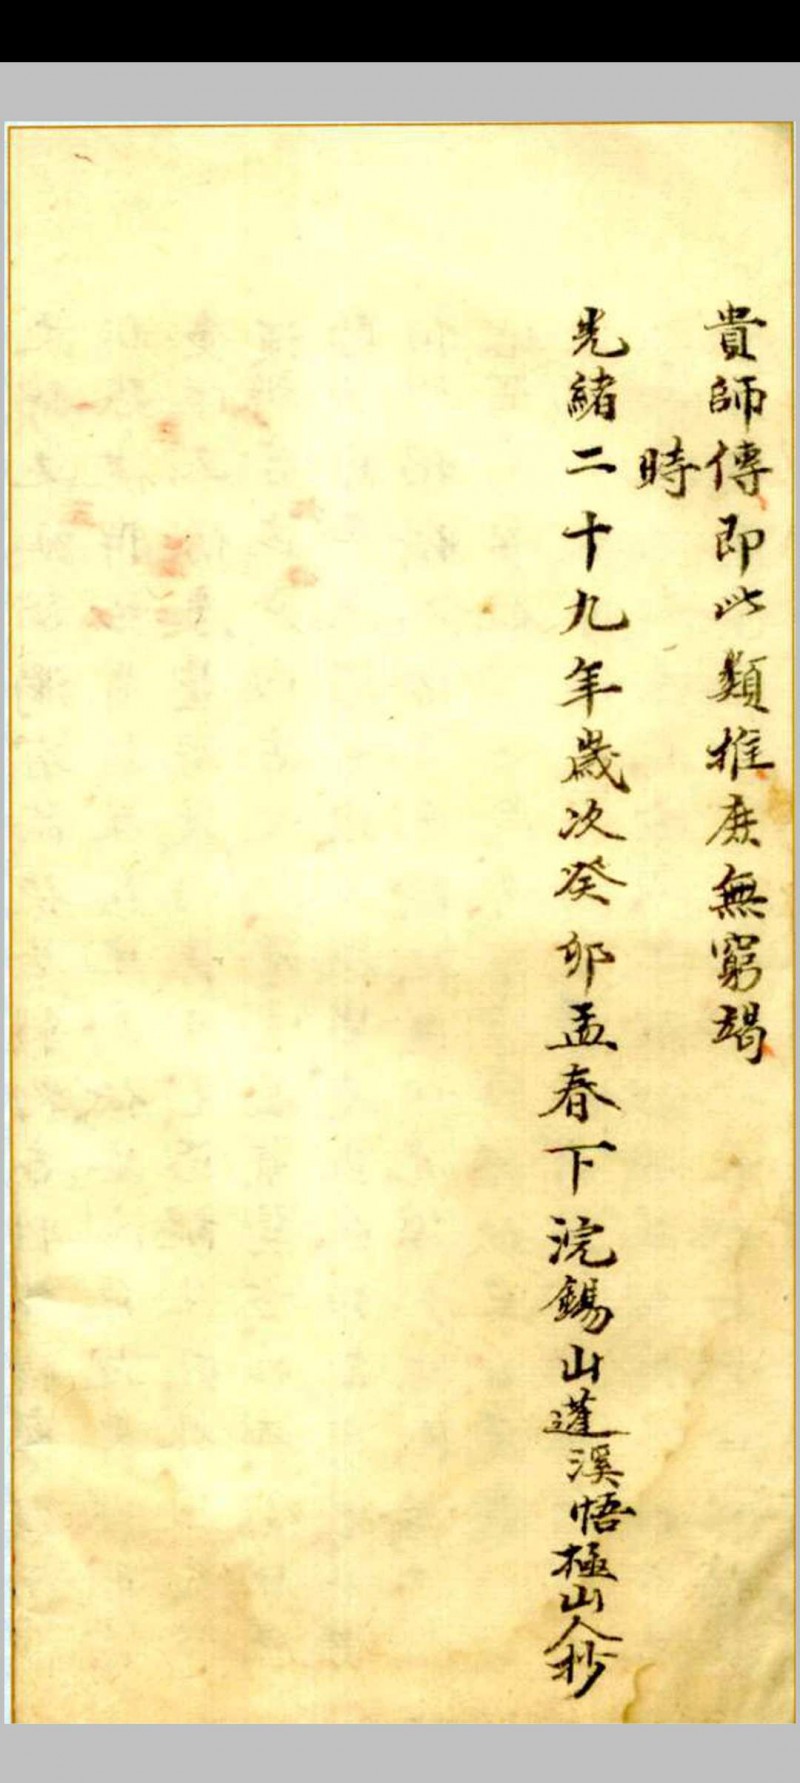 貴師傅即此類推庶無窮竭
時
光緒二十九年歲次癸卯孟春下浣錫山蓬溪悟極山人抄